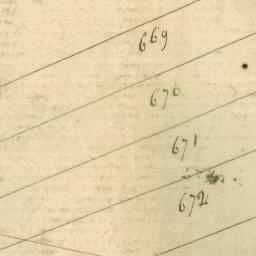 669
670
671
672